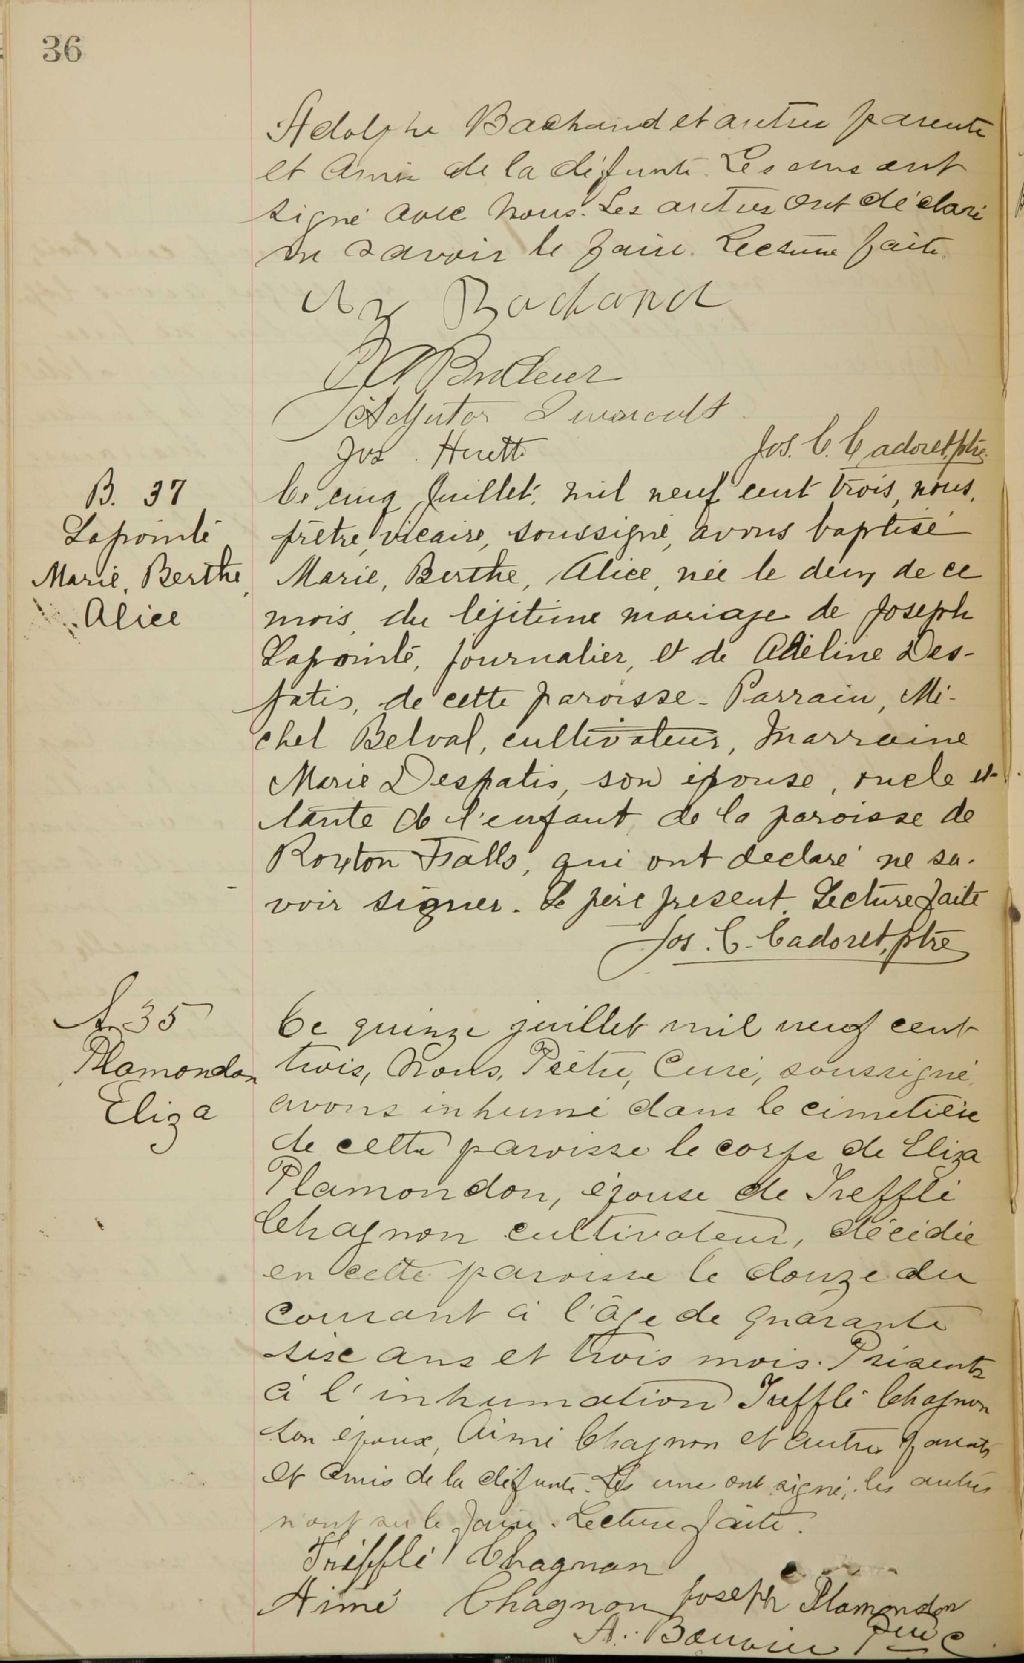 36
Adolphe Bachand et autres parents
et amis de la défunte. Les uns ont
signé avec nous. Les autres ont déclaré
ne savoir le faire. Lecture faite.
Bachand
Brodeur
Adjutor
Jos. Huette
Jos. C. Cadoret, ptre
B. 37
Lapointe
Marie, Berthe,
Alice
Ce cinq Juillet, mil neuf cent trois, nous,
prêtre, vicaire, soussigné, avons baptisé
Marie, Berthe, Alice, née le deux de ce
mois, du légitime mariage de Joseph
Lapointe, journalier, et de Adéline Des-
patis, de cette paroisse - Parrain, Mi-
chel Belval, cultivateur, Marraine
Marie Despatis, son épouse, oncle et
tante de l'enfant, de la paroisse de
Roxton Falls, qui ont declaré ne sa-
voir signer. Le père present. Lecture faite
Jos. C. Cadoret, ptre
S. 35
Plamondon
Eliza
Ce quinze juillet mil neuf cent
trois, Nous, Prêtre, Curé, soussigné,
avons inhumé dans le cimetière
de cette paroisse le corps de Eliza
Plamondon, épouse de Treffle
Chagnon cultivateur, décédée
en cette paroisse le douze du
courant à l'âge de quarante
six ans et trois mois. Présents
à l'inhumation Trefflé Chagnon
son époux, Aimé Chagnon et autres parents
et amis de la défunte. Les uns ont signé, les autres
n'ont su le faire. Lecture faite.
Trefflé Chagnon
Aimé Chagnon Joseph Plamondon
A.